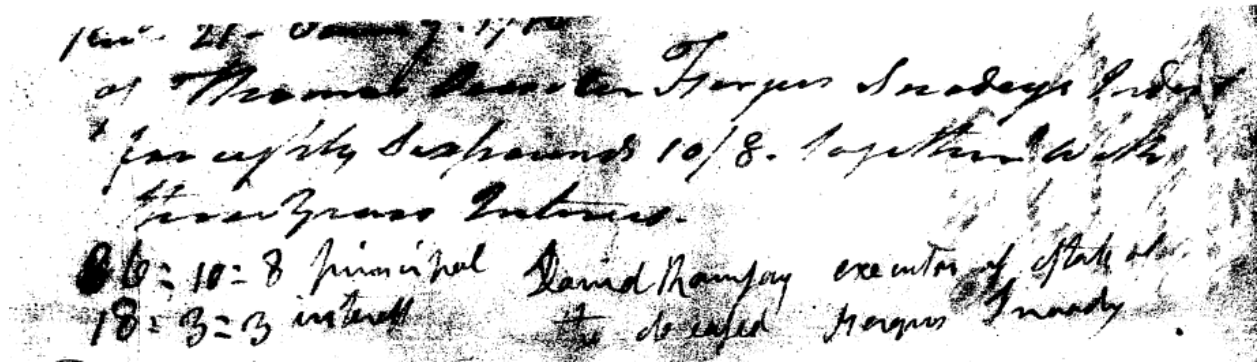 21
of Thomas Fergus Snodeys
for eighty Six pounds 10/8. together With
Years Interest.
86 = 10 = 8 principal David Ramsay executor of estate of
18 = 3 = 3 interest the deceased Fergus Snoddy